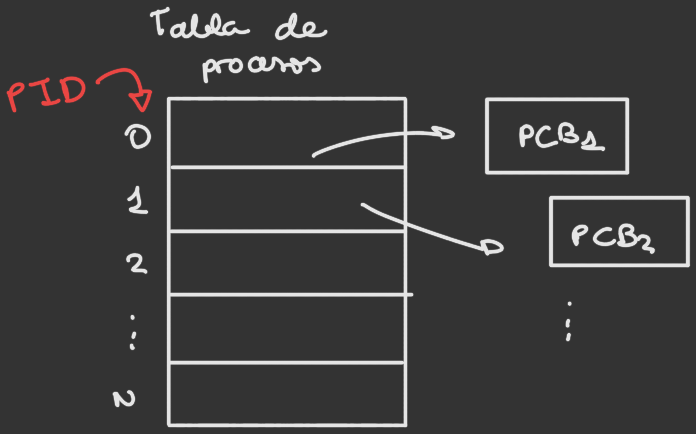 Tabla de
procesos
PID
0
PCB1
1
PCB2
2
⋮
⋮
N